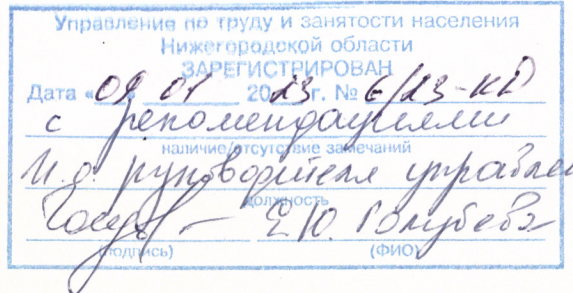 Управление по труду и занятости населения
Нижегородской области
ЗАРЕГИСТРИРОВАН
Дата «09» 01 2023 г. № 6/23-КД
с рекомендациями
наличие/отсутствие замечаний
И.о. руководителя управлен
должность
Е.Ю. Голубева
(подпись) (ФИО)